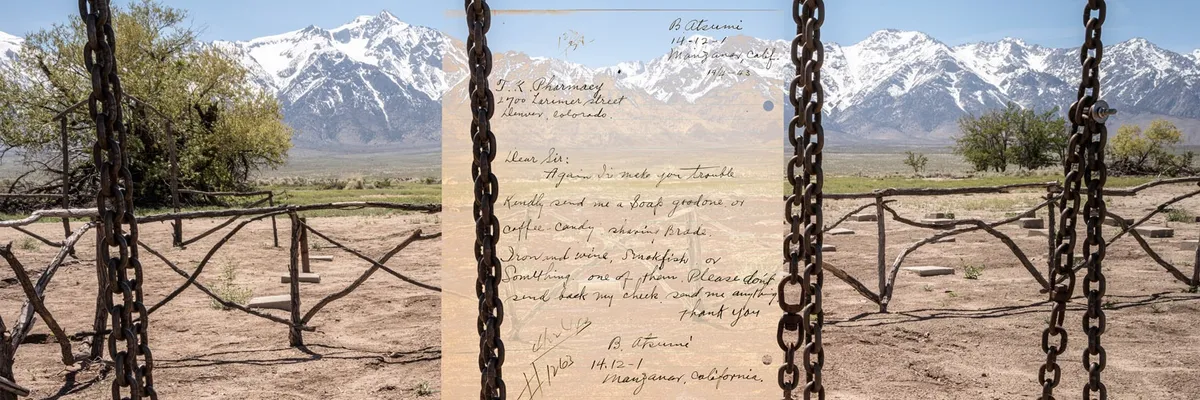 B Atsumi
14-12-1
Manzanar, Calif.
19/4-43
T. K Pharmacy
2700 Larimer street
Denver, Colorado.
Dear Sir:
Again I'v make you trouble
Kendly send me a Soap goodone or
coffee candy shaving Brade.
Iron and wine, Smokfish or
Somthing one of them. Please don't
send back my check send me anything
Thank you
B. Atsumi
14.12-1
Manzanar, California.